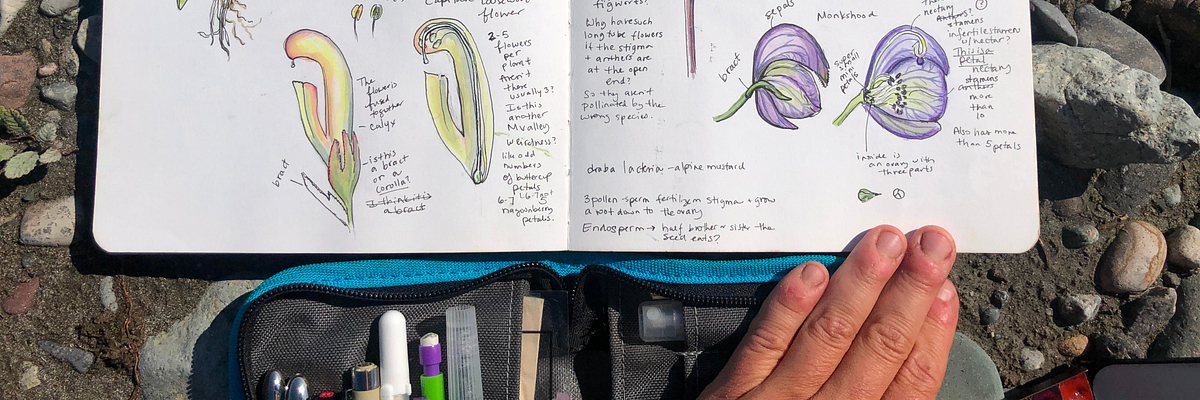 Capitate lousewort
flower
The
flower is
fused
together
– calyx
bract
is this
a bract
or a
corolla?
I think it is
a bract
2-5
flowers
per
plant
Aren't
there
usually 3?
Is this
another
M valley
weirdness?
like odd
numbers
of buttercup
petals
6-7 not 5
nagoonberry
petals.
figworts?
Why have such
long tube flowers
if the stigma
+ anthers are
at the open
end?
So they aren't
pollinated by the
wrong species.
sepals
Monkshood
bract
super
small
mini
petals
nectary
Anthers?
stamens
infertile stamens
w/nectar?
This is a
petal
nectary
stamens
anthers
more
than
10
Also has more
than 5 petals
inside is
an ovary with
three parts
draba lactea – alpine mustard
3 pollen - sperm fertilize stigma + grow
a root down to the ovary
Endosperm → half brother or sister the
seed eats?